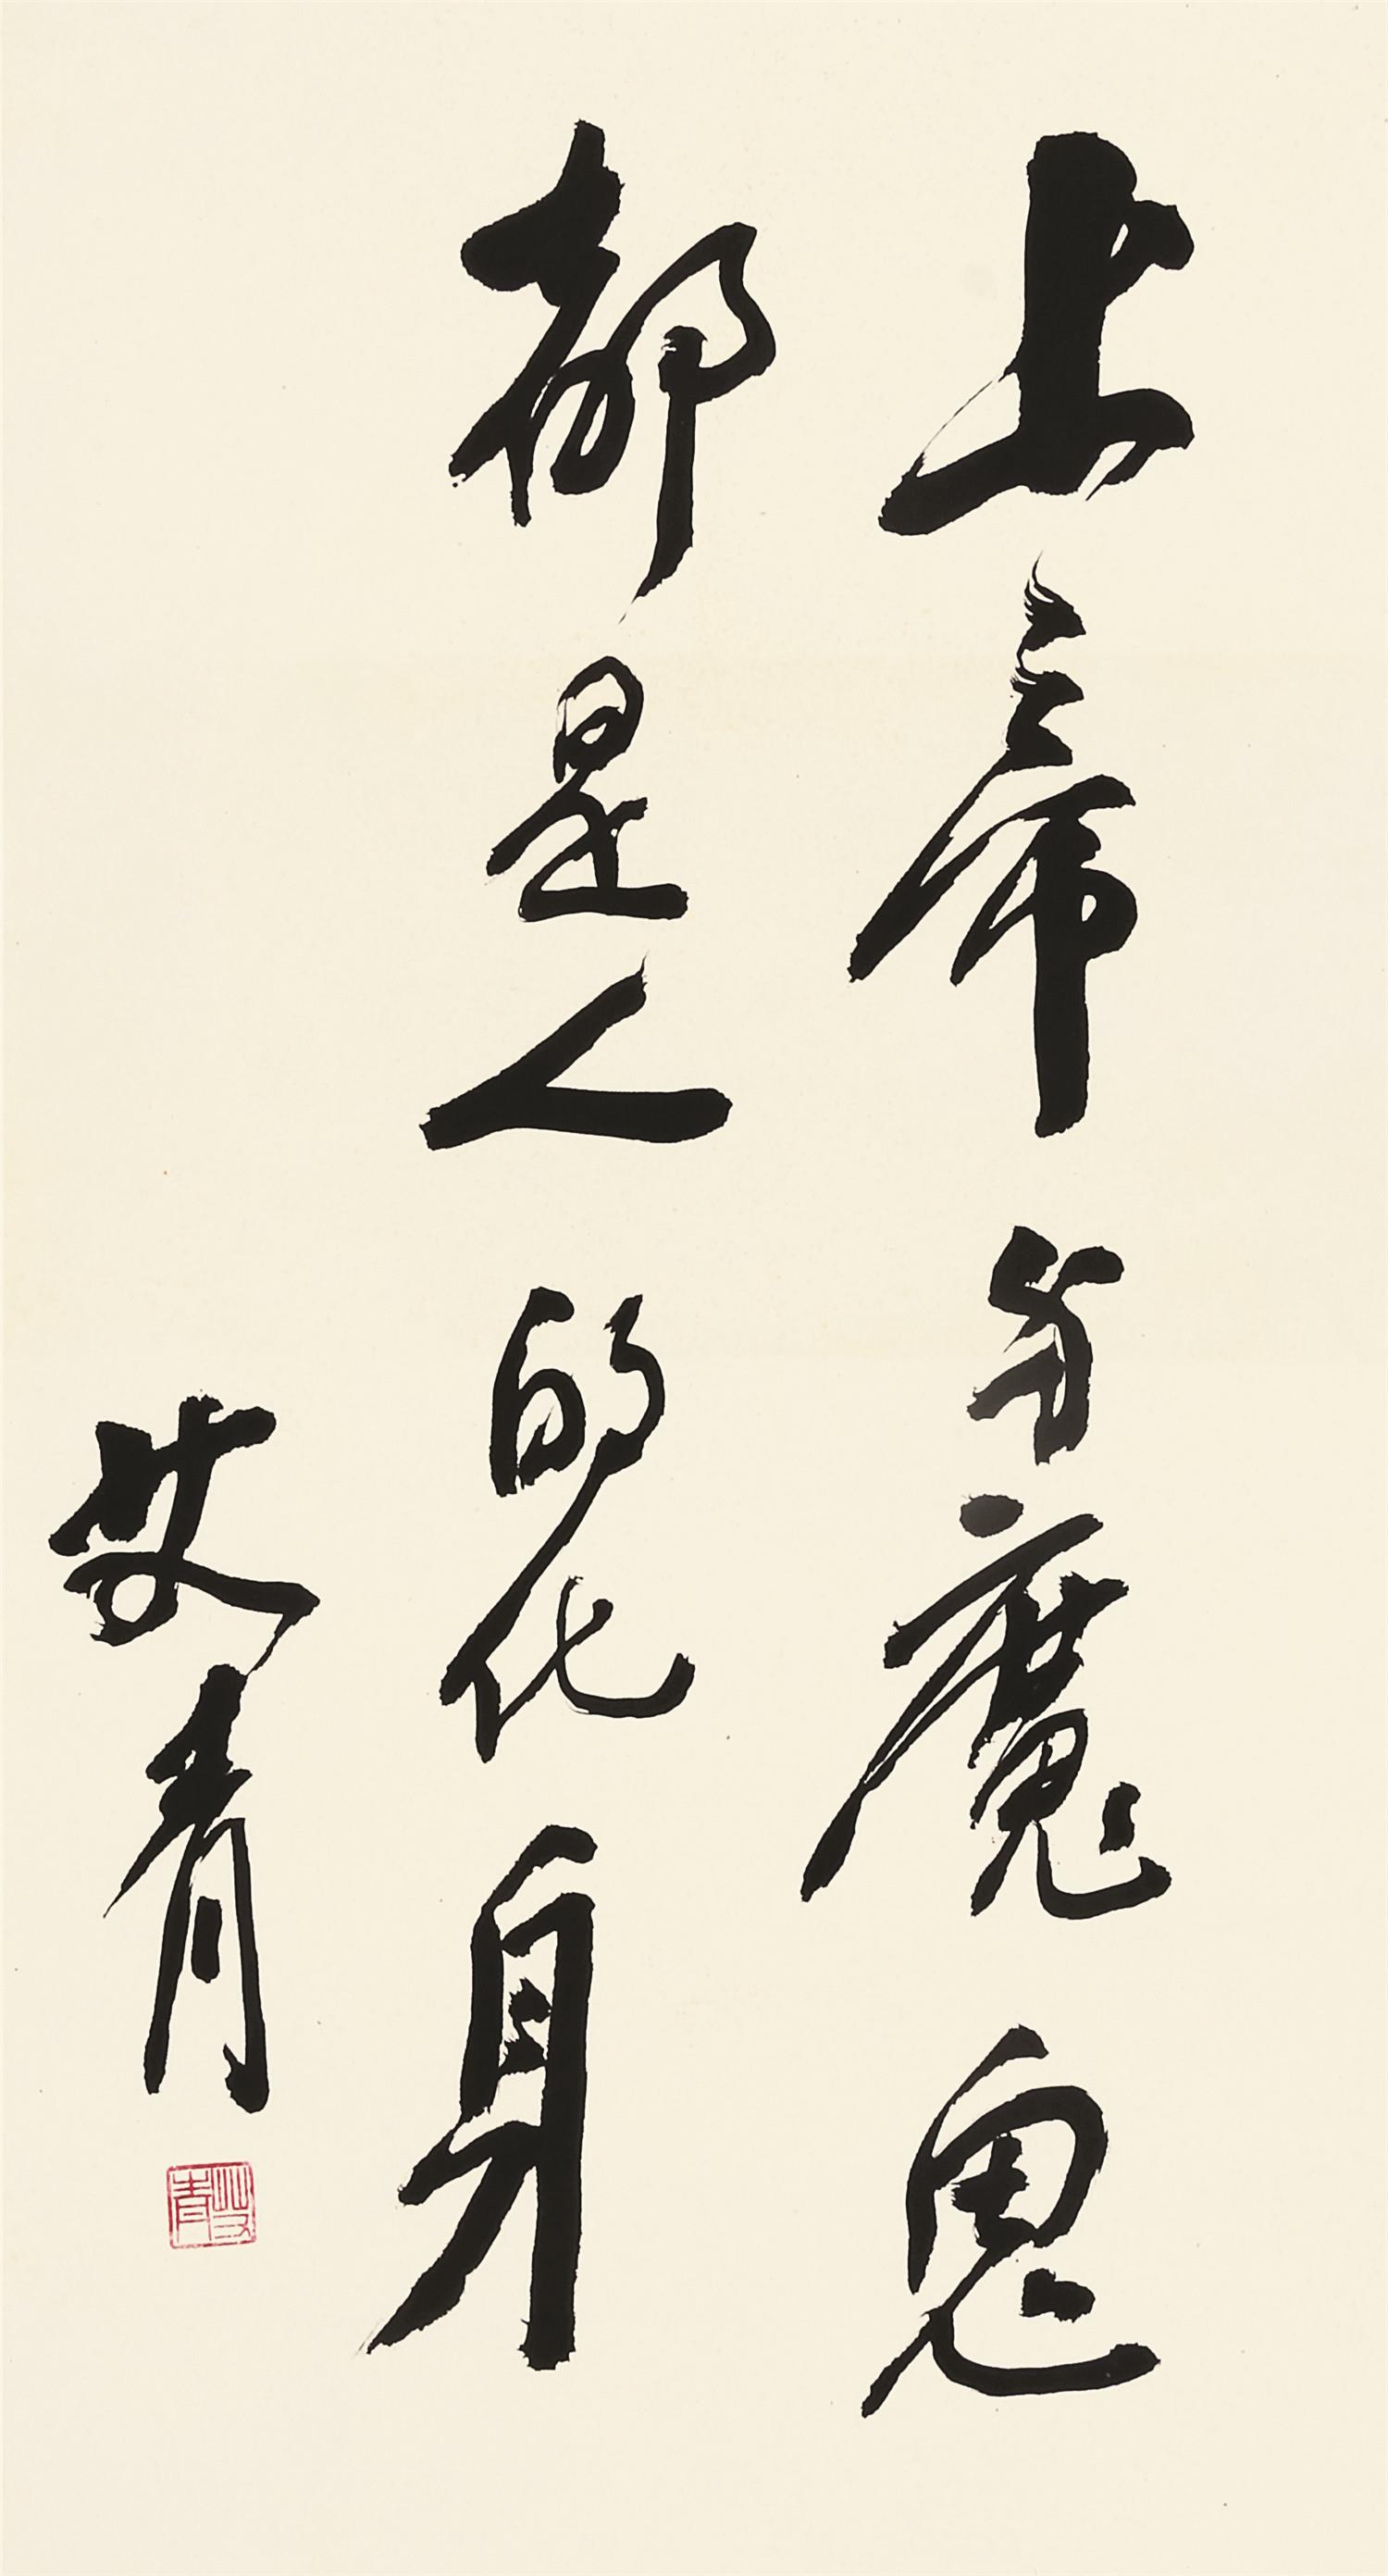 上帝与魔鬼
都是人的化身
艾青
艾青